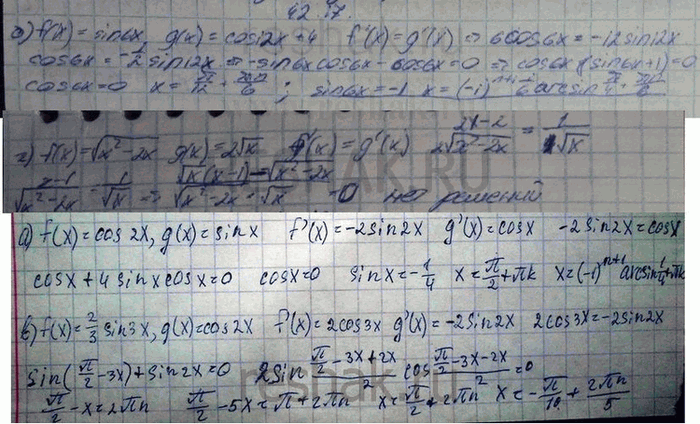 42.17.
б) f(x) = sin6x g(x) = cos12x + 4 f'(x) = g'(x) ⇒ 6cos6x = -12sin12x
cos6x = -1/2 sin12x ⇒ -sin6x cos6x - cos6x = 0 ⇒ cos6x (sin6x+1) = 0
cos6x = 0 x = π/12 + πn/6 ; sin6x = -1 x = (-1)
г) f(x) = √x²-2x g(x) = 2√x f'(x) = g'(x) 2x-2/2√x²-2x = 1/√x
x-1/√x²-2x - 1/√x ⇒ √x(x-1) - √x²-2x/√x²-2x · √x = 0 нет решений
а) f(x) = cos 2x, g(x) = sin x f'(x) = -2sin2x g'(x) = cosx -2sin2x = cosx
cosx + 4 sinx cosx = 0 cosx = 0 sinx = -1/4 x = π/2 + πk x = (-1)ⁿ⁺¹ arcsin 1/4 + πn
в) f(x) = 2/3 sin3x, g(x) = cos2x f'(x) = 2cos3x g'(x) = -2sin2x 2cos3x = -2sin2x
sin(π/2 - 3x) + sin2x = 0 2sin π/2 - 3x + 2x/2 cos π/2 - 3x - 2x/2 = 0
π/2 - x = 2πn π/2 - 5x = π + 2πn x = π/2 + 2πn x = -π/10 + 2πn/5
reshak.ru